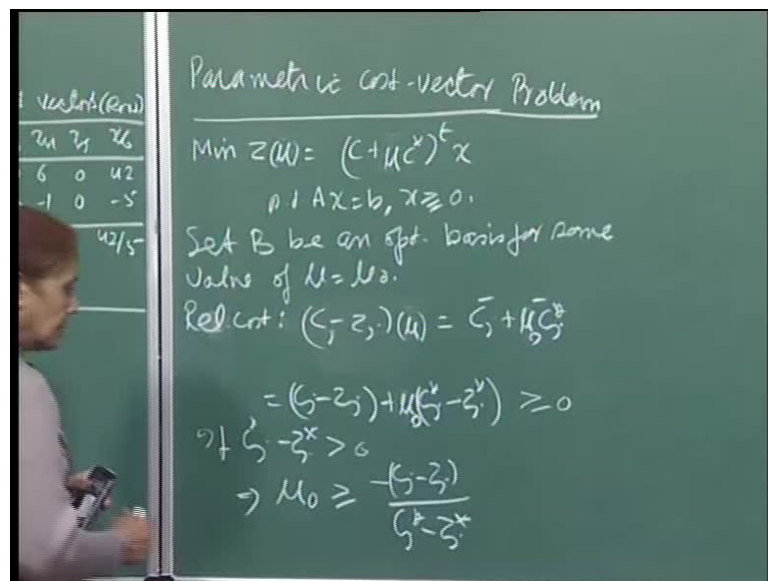 vectors (Row)
x4 x5 x6
6 0 42
-1 0 -5
42/5
Parametric cost-vector Problem
Min Z(μ) = (c+μc*)ᵗx
s.t Ax=b, x≥0.
Let B be an opt. basis for some
value of μ=μ₀.
Rel. cost: (cj-zj)(μ) = c̄j + μ₀c̄j*
= (cj-zj)+μ₀(cj*-zj*) ≥0
If cj*-zj* >0
⇒ μ₀ ≥ -(cj-zj)/(cj*-zj*)